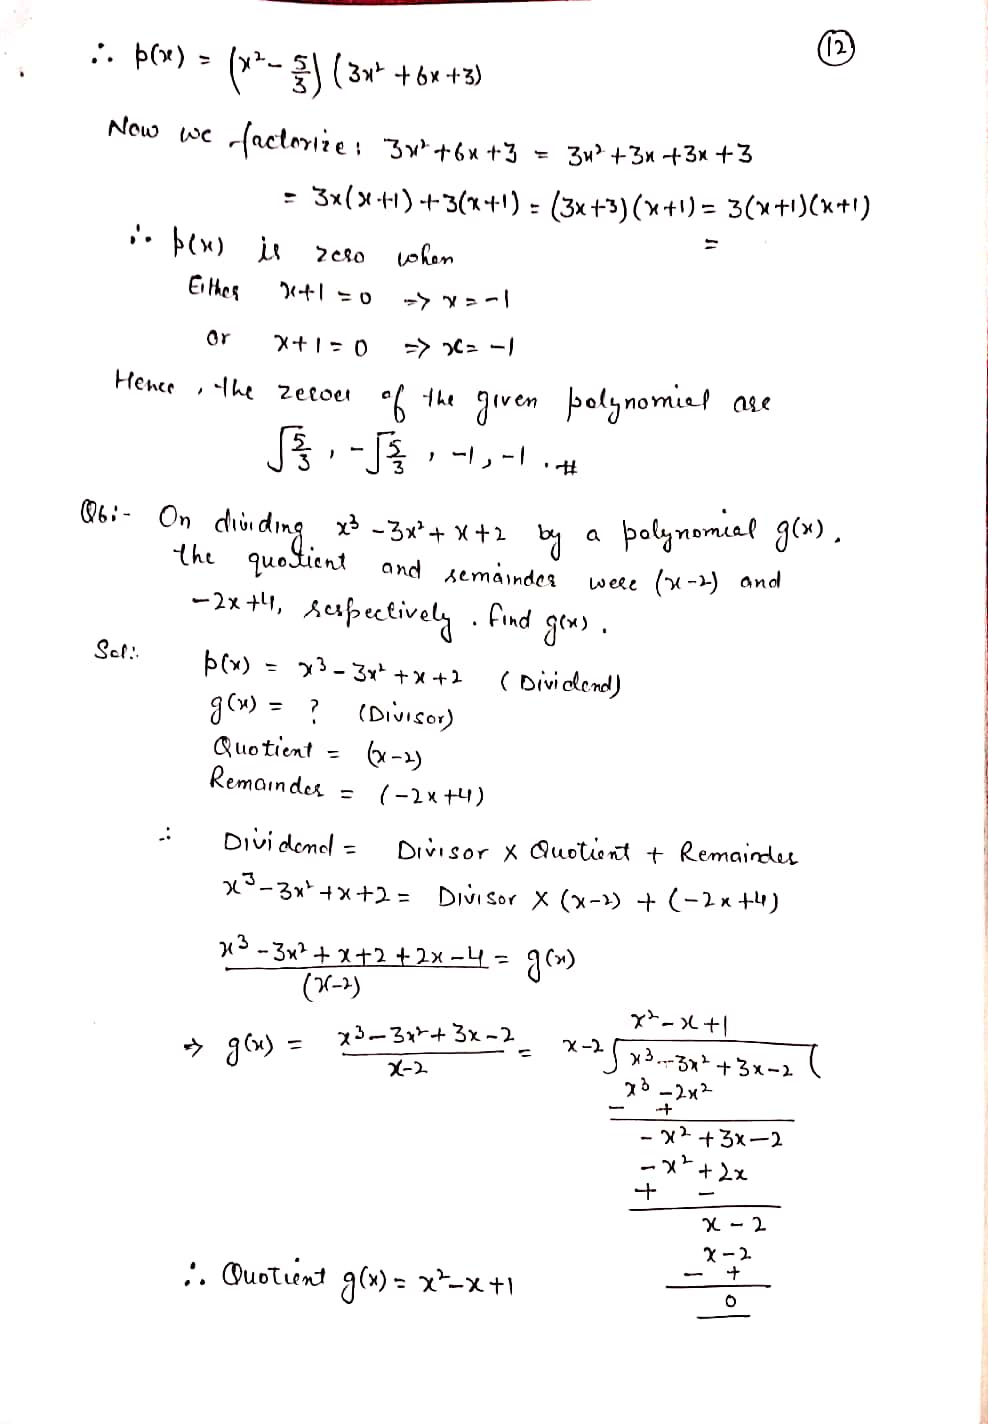 (12)
∴ p(x) = (x² - 5/3) (3x² + 6x + 3)
Now we factorize: 3x² + 6x + 3 = 3x² + 3x + 3x + 3
= 3x(x+1) + 3(x+1) = (3x+3)(x+1) = 3(x+1)(x+1)
=
∴ p(x) is zero when
Either x+1 = 0 => x = -1
or x+1 = 0 => x = -1
Hence, the zeroes of the given polynomial are
√5/3, -√5/3, -1, -1. #
Q6:- On dividing x³ - 3x² + x + 2 by a polynomial g(x),
the quotient and remainder were (x-2) and
-2x+4, respectively. find g(x).
Sol:- p(x) = x³ - 3x² + x + 2 (Dividend)
g(x) = ? (Divisor)
Quotient = (x-2)
Remainder = (-2x+4)
∴ Dividend = Divisor × Quotient + Remainder
x³ - 3x² + x + 2 = Divisor × (x-2) + (-2x+4)
x³ - 3x² + x + 2 + 2x - 4 = g(x)
(x-2)
x² - x + 1
⇒ g(x) = x³ - 3x² + 3x - 2 = x-2 ) x³ - 3x² + 3x - 2 (
x-2
x³ - 2x²
- +
- x² + 3x - 2
- x² + 2x
+ -
x - 2
x - 2
- +
0
∴ Quotient g(x) = x² - x + 1